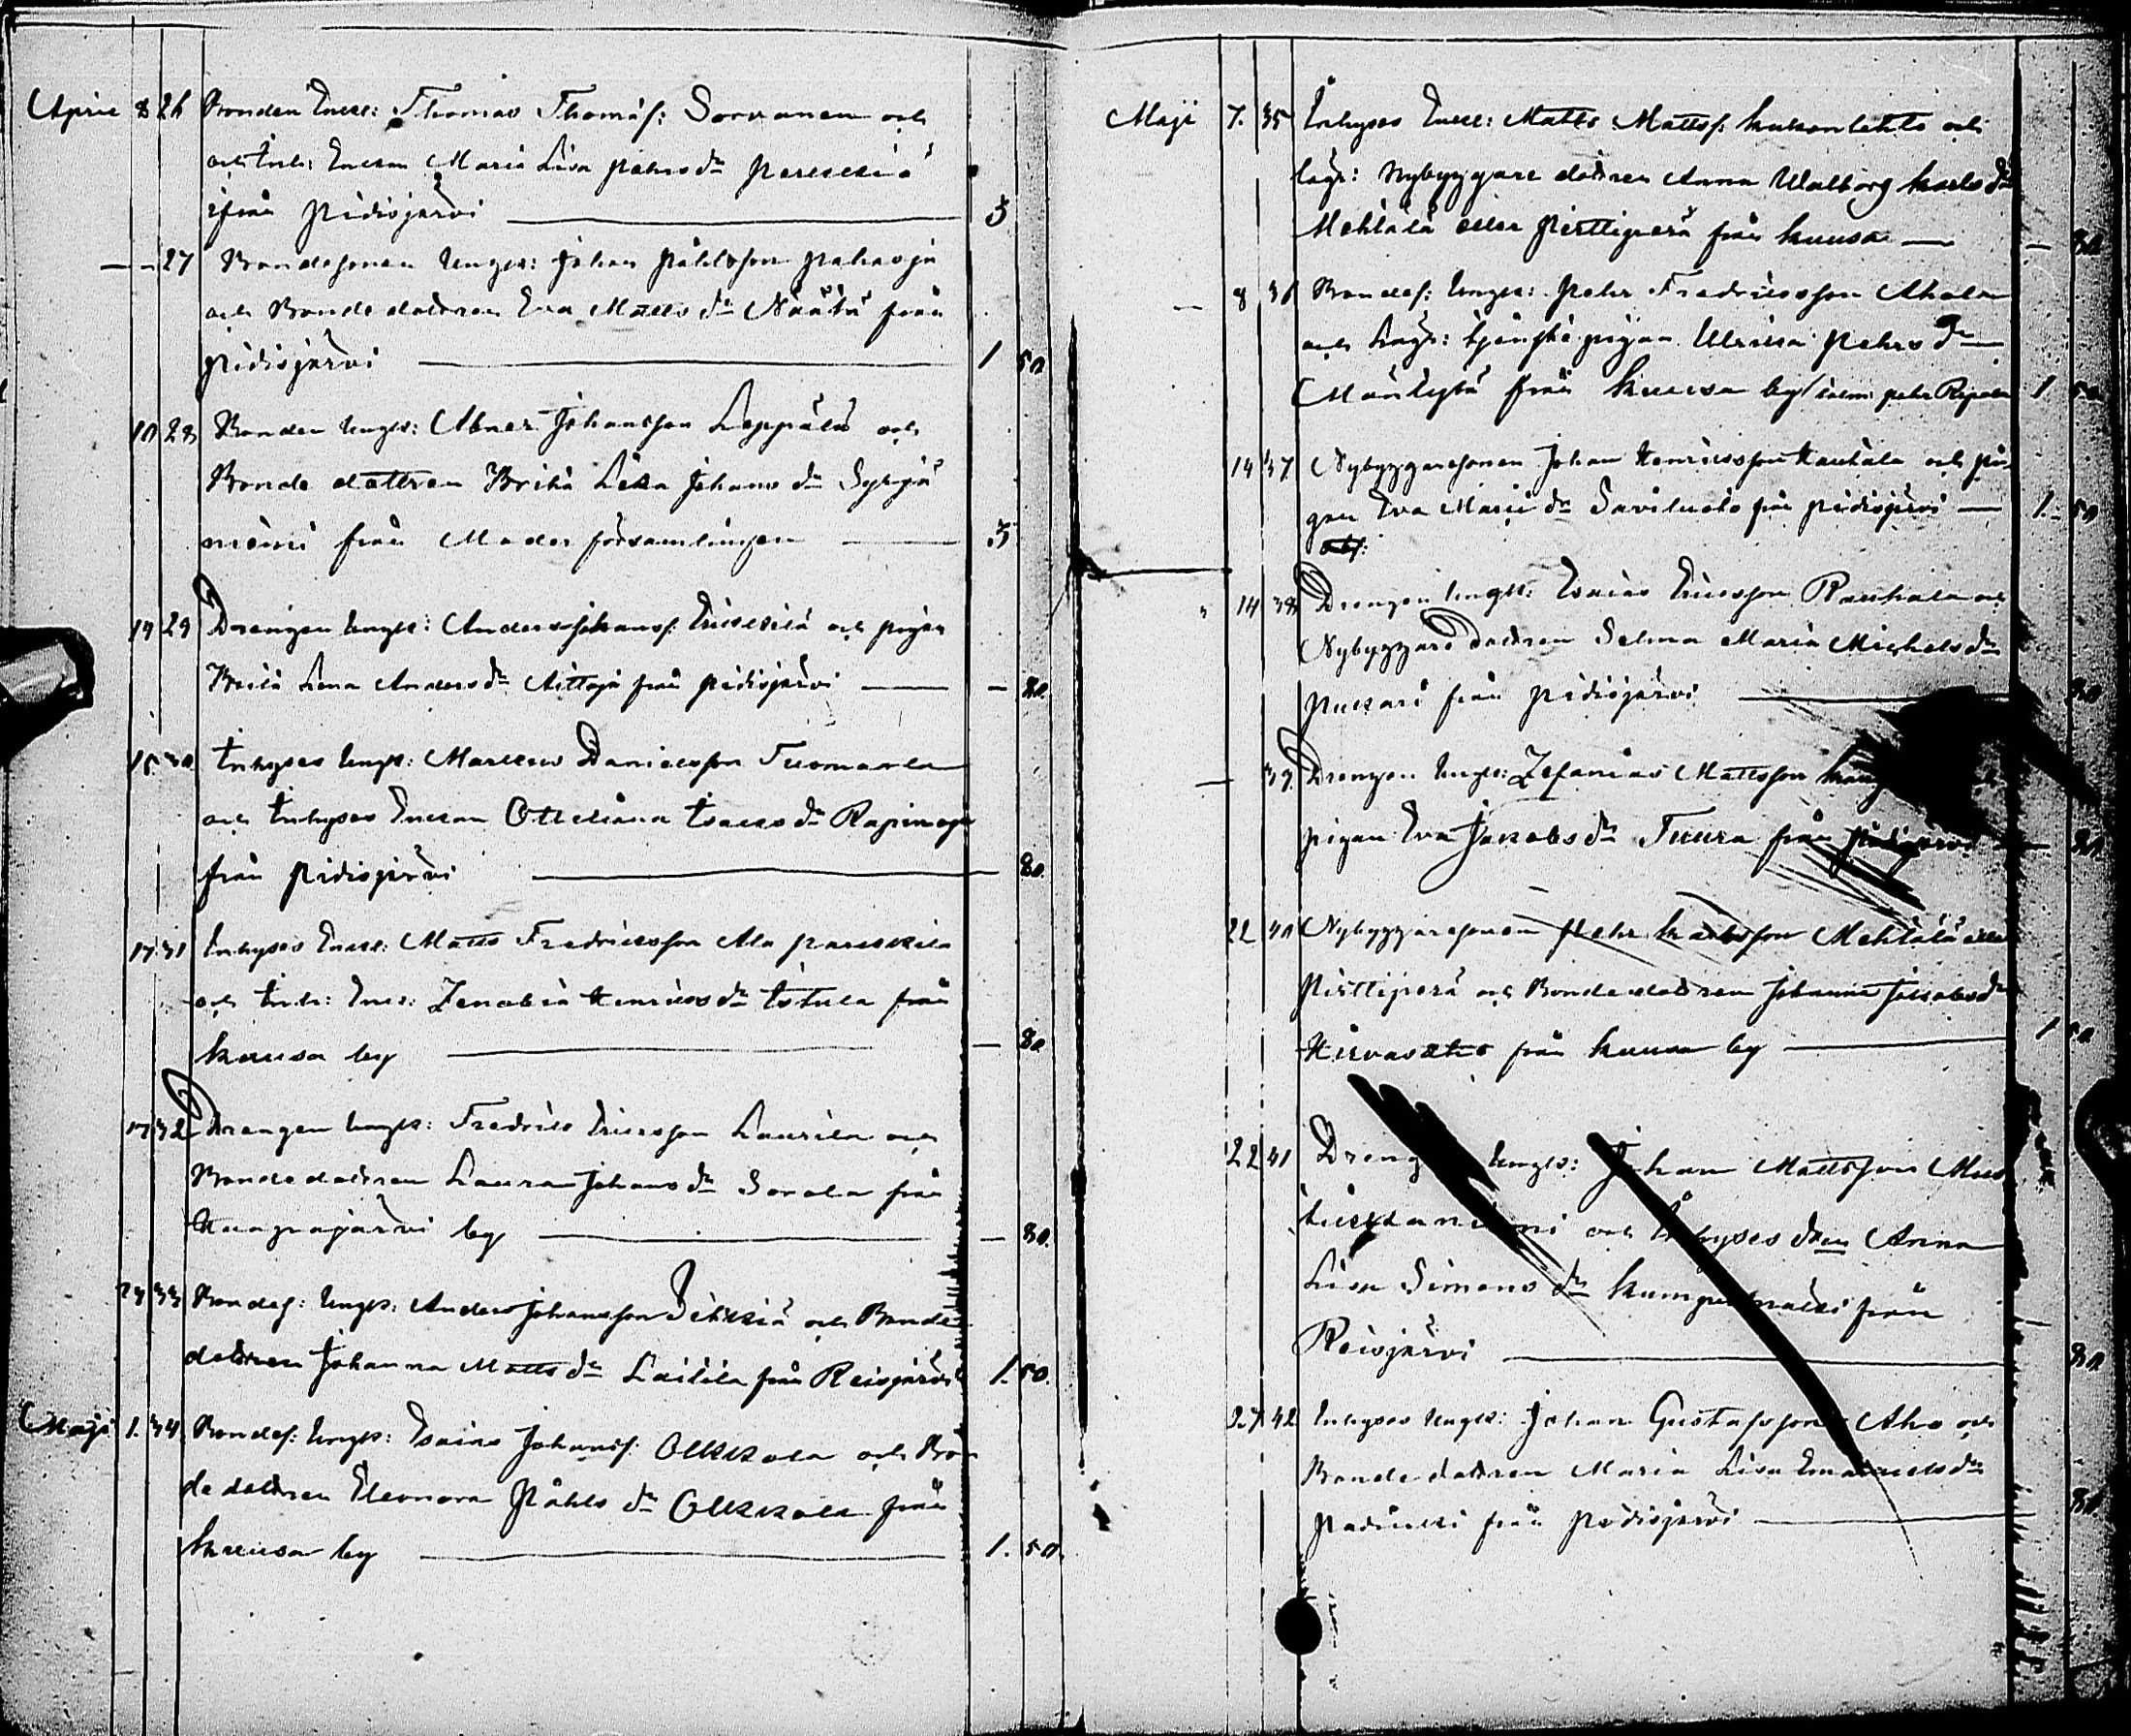 April 8 26 Bonden Enkl: Thomas Thomasf: Sorvanen och
och Inh: Enkan Maria Lisa Pehrs dr
ifrån Pidisjärvi 3
— — 27 Bondesonen Ungk: Johan Påhlsson Pahaoja
och Bonde dottren Eva Matts dr Näätä från
Pidisjärvi 1 50
10 28 Bonden Ungk: Abner Johansson Leppälä och
Bonde dottren Brita Lisa Johans dr Syrjä
niemi från Moder församlingen 3
14 29 Drengen Ungk: Anders Johansf: Erickilä och pigan
Brita Lena Anders dr Aittoja från Pidisjärvi — 80.
15 30 Inhyses Ungk: Marcus Danielsson Tuomaala
och Inhyses Enkan Isacs dr
från Pidisjärvi 80.
17 31 Inhyses Enkl: Matts Fredricsson Ala
och Inh: Enk: Zenobia Henrics dr från
Kuusa by — 80
17 32 Drengen Ungk: Fredric Ericsson Laurila och
Bonde dottren Laura Johans dr Sorola från
Haapajärvi by — 80.
24 33 Bondef: Ungk: Anders Johansson och Bonde
dottren Johanna Matts dr Laitila från Reisjärvi 1. 50.
Maji 1. 34 Bondef: Ungk: Esaias Johansf: Olkkola och Bon
de dottren Eleonora Påhls dr Olkkola från
Kuusa by 1. 50.
Maji 7. 35 Inhyses Enkl: Matts Mattsf: Kukonlehto och
lägr: Nybyggare dottren Anna Walborg Karls dr
Mehtälä eller Pirttiperä från Kuusa — 80
— 8 36 Bondef: Ungk: Pehr Fredricsson Ahola
och Lägr: tjenste pigan Ulrica Pehrs dr
Mäntylä från Kuusa by 1 50
14 37 Nybyggaresonen Johan Henricsson Rautala och pi
gan Eva Marie dr Saviluoto från Pidisjärvi 1. 50
" 14 38 Drengen Ungk: Esaias Ericsson Rauhala och
Nybyggare dottren Selma Maria Michels dr
från Pidisjärvi 80
— 39. Drengen Ungk: Zefanias Mattsson
pigan Eva Jakobs dr Tuura från Pidisjärvi — 80.
22 40 Nybyggaresonen Pehr Karlsson Mehtälä eller
Pirttiperä och Bonde dottren Johanna Jakobs dr
Hirvasko från Kuusa by 1 50
22 41 Drengen Ungk: Johan Mattsson Mus
och Inhyses dren Anna
Lisa Simons dr från
Reisjärvi 80
27 42 Inhyses Ungk: Johan Gustafsson Aho och
Bonde dottren Maria Lisa Emanuels dr
från Pidisjärvi 80.